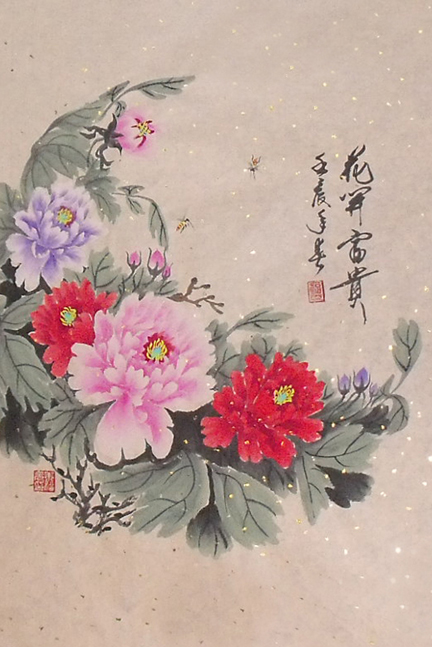 花开富贵
壬辰年春